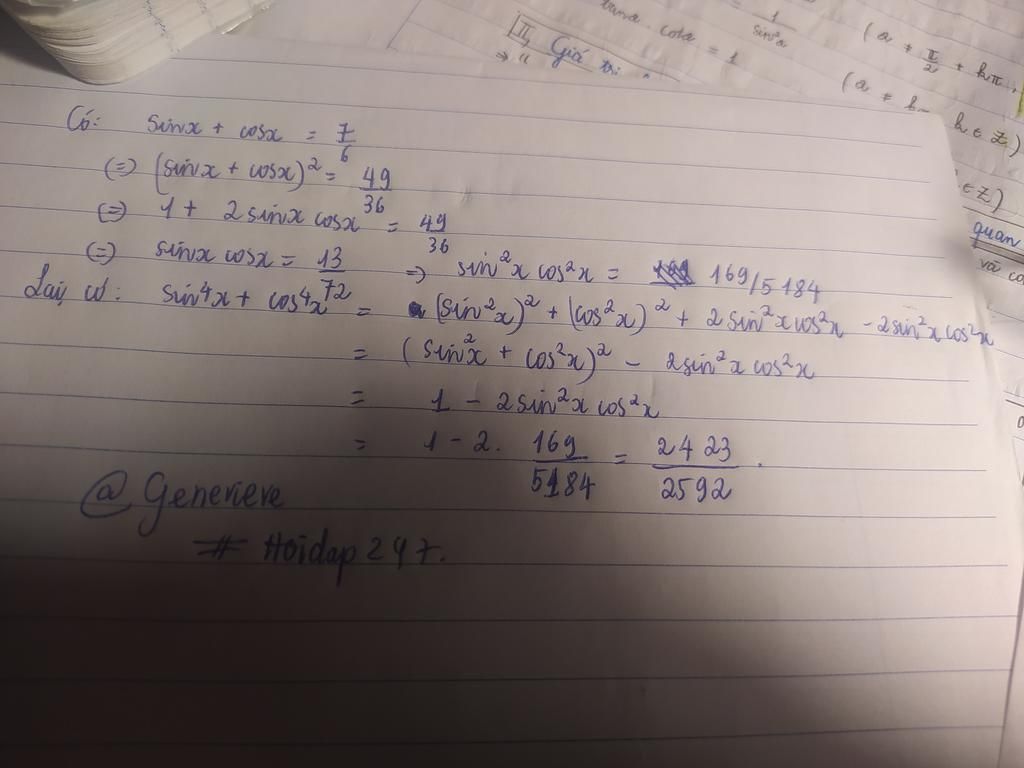 trina. cota = 1
1/sin²a
(a ≠ π/2 + kπ,
II, Giá trị
(a ≠ k
k ∈ Z)
∈ Z)
quan
và co
Có: sinx + cosx = 7/6
(=) (sinx + cosx)² = 49/36
(=) 1 + 2 sinx cosx = 49/36
(=) sinx cosx = 13/72 => sin²x cos²x = 169/5184
Lại có: sin⁴x + cos⁴x = (sin²x)² + (cos²x)² + 2sin²x cos²x - 2sin²x cos²x
= (sin²x + cos²x)² - 2sin²x cos²x
= 1 - 2sin²x cos²x
= 1 - 2. 169/5184 = 2423/2592.
@ Generieve
# Hoidap247.